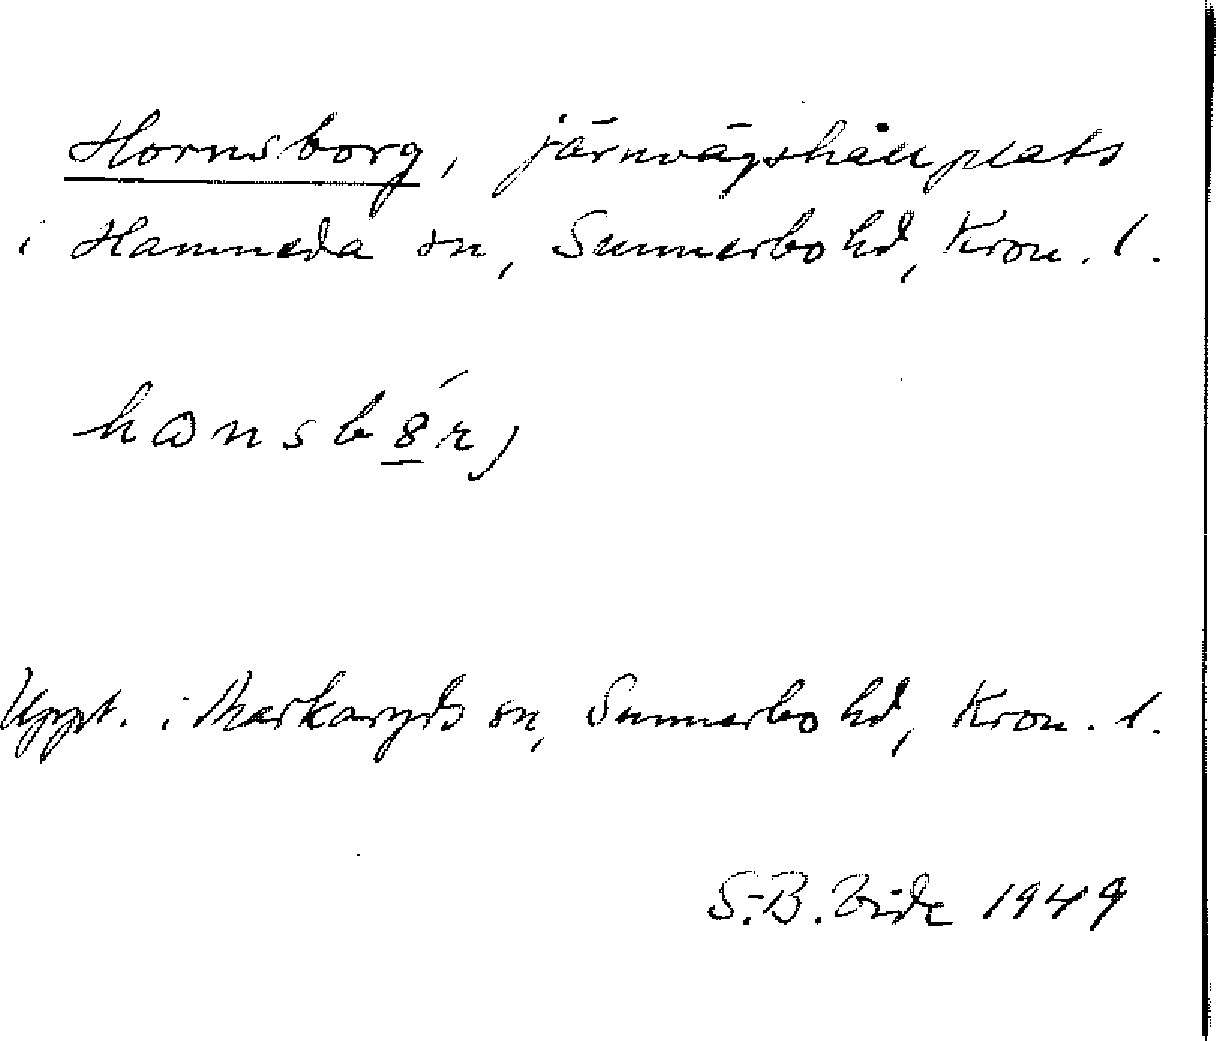 Hornsborg, järnvägshållplats
i Hamneda sn, Sunnerbo hd, Kron. l.
Uppt. i Markaryds sn, Sunnerbo hd, Kron. l.
S.-B. Vide 1949